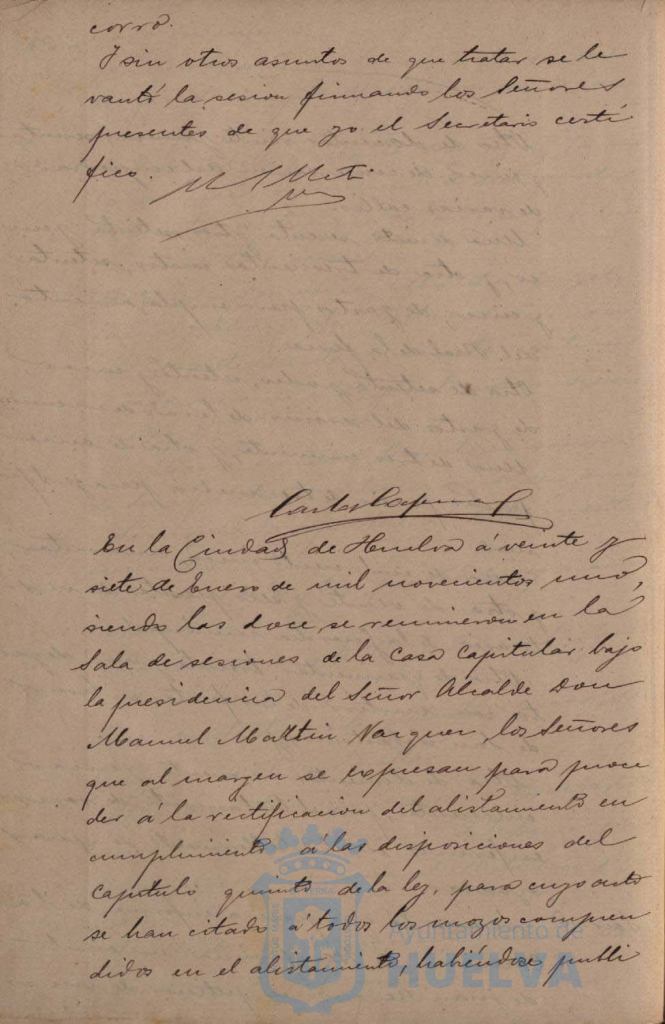 corro.
Y sin otros asuntos de que tratar se le
vantó la sesion firmando los Señores
presentes de que yo el Secretario certi
fico.
En la Ciudad de Huelva á veinte y
siete de Enero de mil novecientos uno,
siendo las doce, se reunieron en la
Sala de sesiones de la casa Capitular bajo
la presidencia del Señor Alcalde Don
Manuel Mattin Vazquez, los Señores
que al margen se expresan para proce
der á la rectificacion del alistamiento en
cumplimiento á las disposiciones del
Capitulo quinto de la ley, para cuyo acto
se han citado á todos los mozos compren
didos en el alistamiento, habiéndose publi
Ayuntamiento de
HUELVA